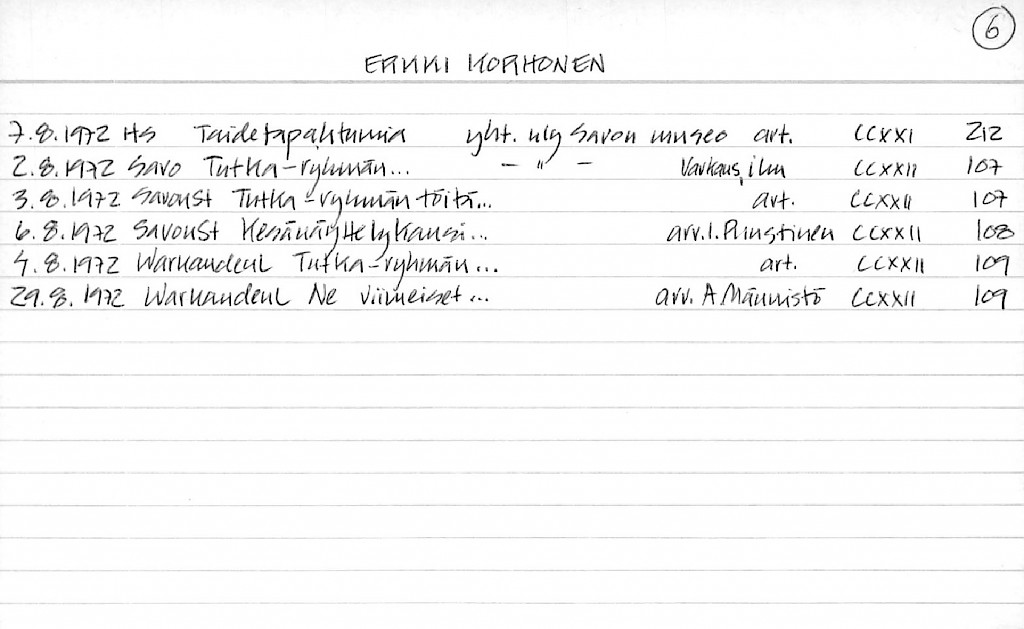 6
ERKKI KORHONEN
7.8.1972 HS Taidetapahtumia yht. nlg Savon museo art. CCXXI 212
2.8.1972 Savo Tutka-ryhmän... - " - Varkaus, ilm CCXXII 107
3.8.1972 SavonSt Tutka-ryhmän töitä... art. CCXXII 107
6.8.1972 SavonSt Kesänäyttelykausi... arv. I. Puustinen CCXXII 108
4.8.1972 WarkaudenL Tutka-ryhmän... art. CCXXII 109
29.8.1972 WarkaudenL Ne viimeiset... arv. A Männistö CCXXII 109